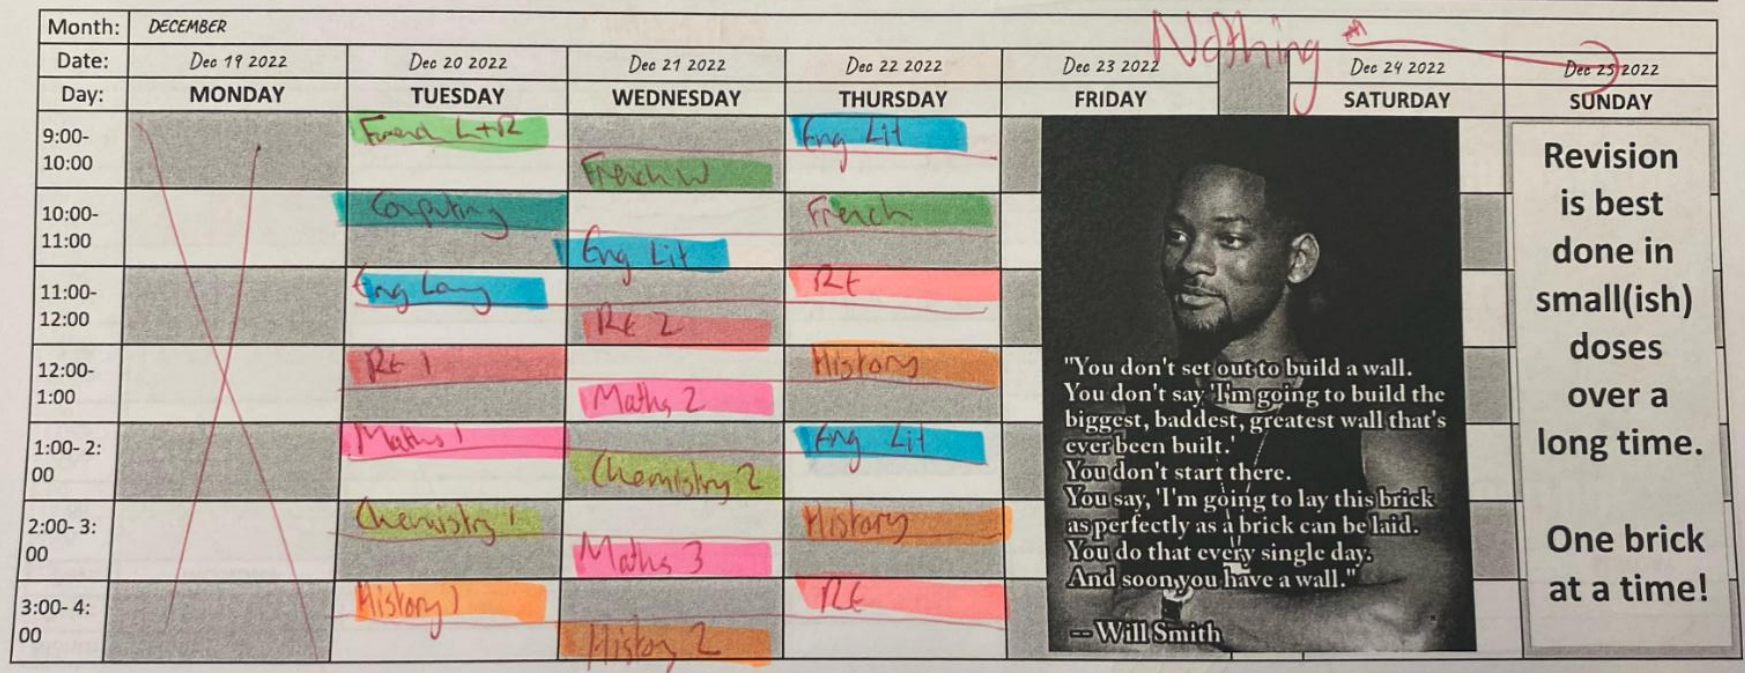 Nothing
Month: DECEMBER
Date: Dec 19 2022 Dec 20 2022 Dec 21 2022 Dec 22 2022 Dec 23 2022 Dec 24 2022 Dec 25 2022
Day: MONDAY TUESDAY WEDNESDAY THURSDAY FRIDAY SATURDAY SUNDAY
9:00-
10:00
French L+R
French W
Eng Lit
10:00-
11:00
Computing
Eng Lit
French
11:00-
12:00
Eng Lang
RE 2
RE
12:00-
1:00
RE 1
Maths 2
History
1:00- 2:
00
Maths 1
Chemistry 2
Eng Lit
2:00- 3:
00
Chemistry 1
Maths 3
History
3:00- 4:
00
History 1
History 2
RE
"You don't set out to build a wall.
You don't say 'I'm going to build the
biggest, baddest, greatest wall that's
ever been built.'
You don't start there.
You say, 'I'm going to lay this brick
as perfectly as a brick can be laid.
You do that every single day.
And soon you have a wall."
-- Will Smith
Revision
is best
done in
small(ish)
doses
over a
long time.
One brick
at a time!